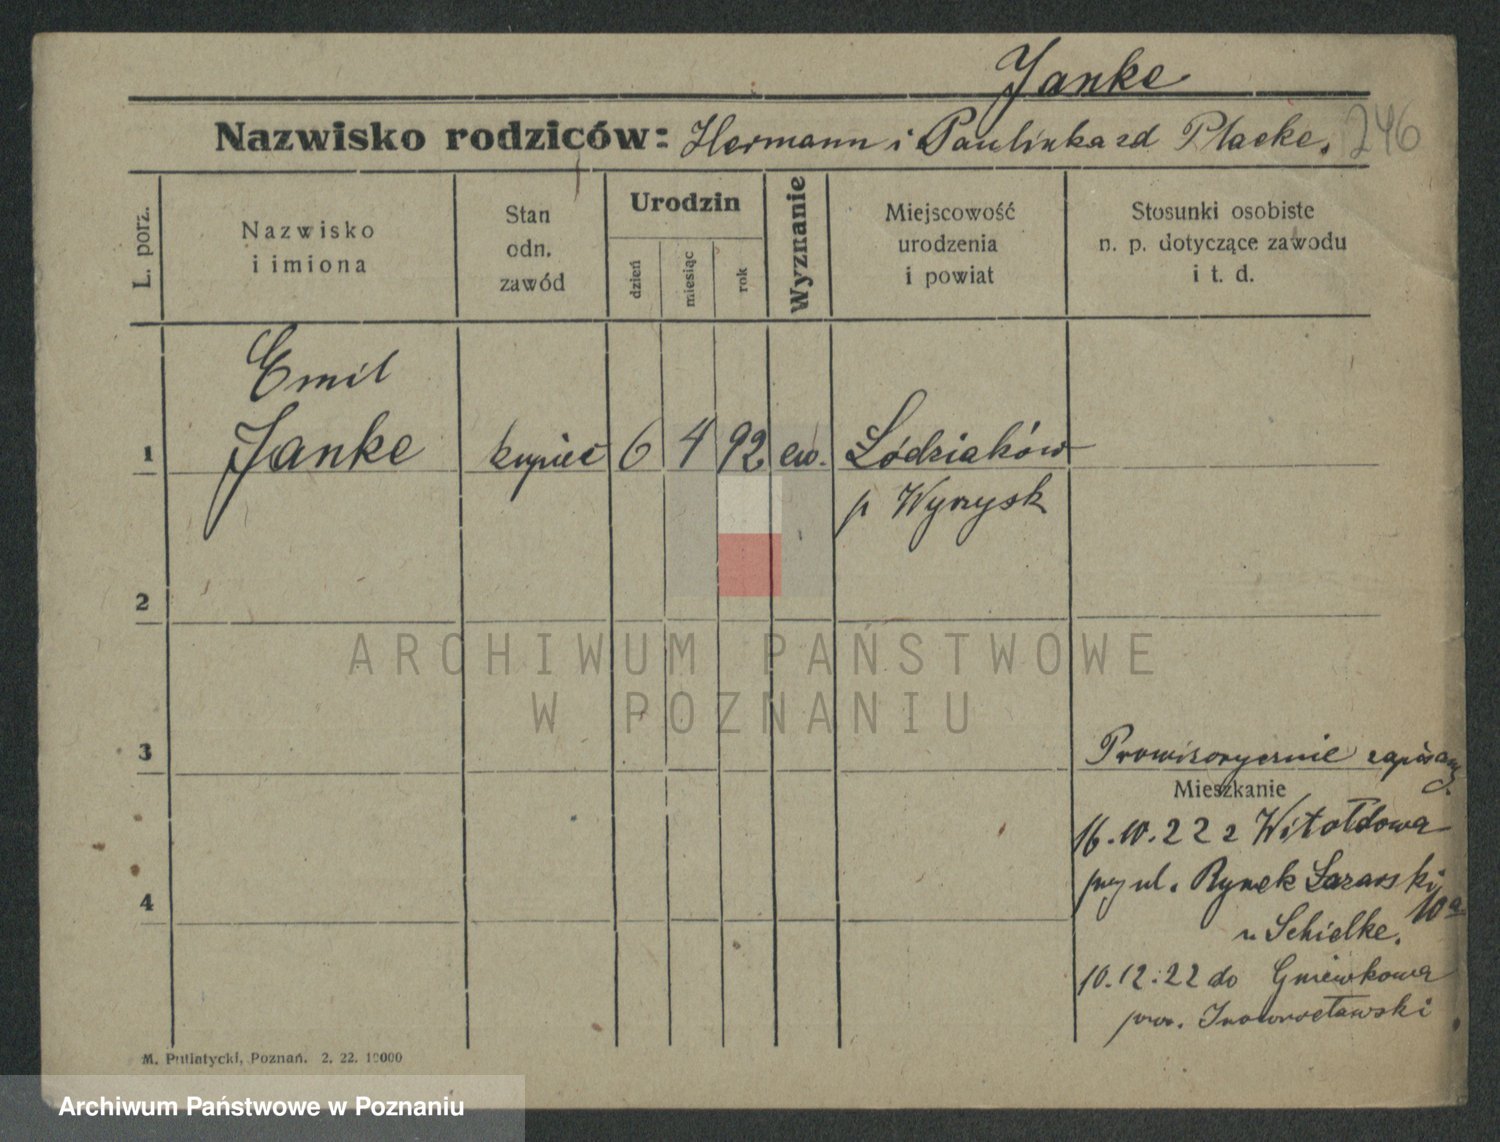 Janke
Nazwisko rodziców: Hermann i Paulinka zd Placke. 246
L. porz.
Nazwisko
i imiona
Stan
odn.
zawód
Urodzin
dzień
miesiąc
rok
Wyznanie
Miejscowość
urodzenia
i powiat
Stosunki osobiste
n. p. dotyczące zawodu
i t. d.
Emil
1 Janke kupiec 6 4 92 ew. Łódziaków
p Wyrzysk
2
ARCHIWUM PAŃSTWOWE
W POZNANIU
3
Prowizorycznie zapisany.
Mieszkanie
16.10.22 z Witołdowa
przy ul. Rynek Łazarski
10a
u Schielke.
4
10.12.22 do Gniewkowa
pow. Inowrocławski
M. Putiatycki, Poznań. 2. 22. 10000
Archiwum Państwowe w Poznaniu